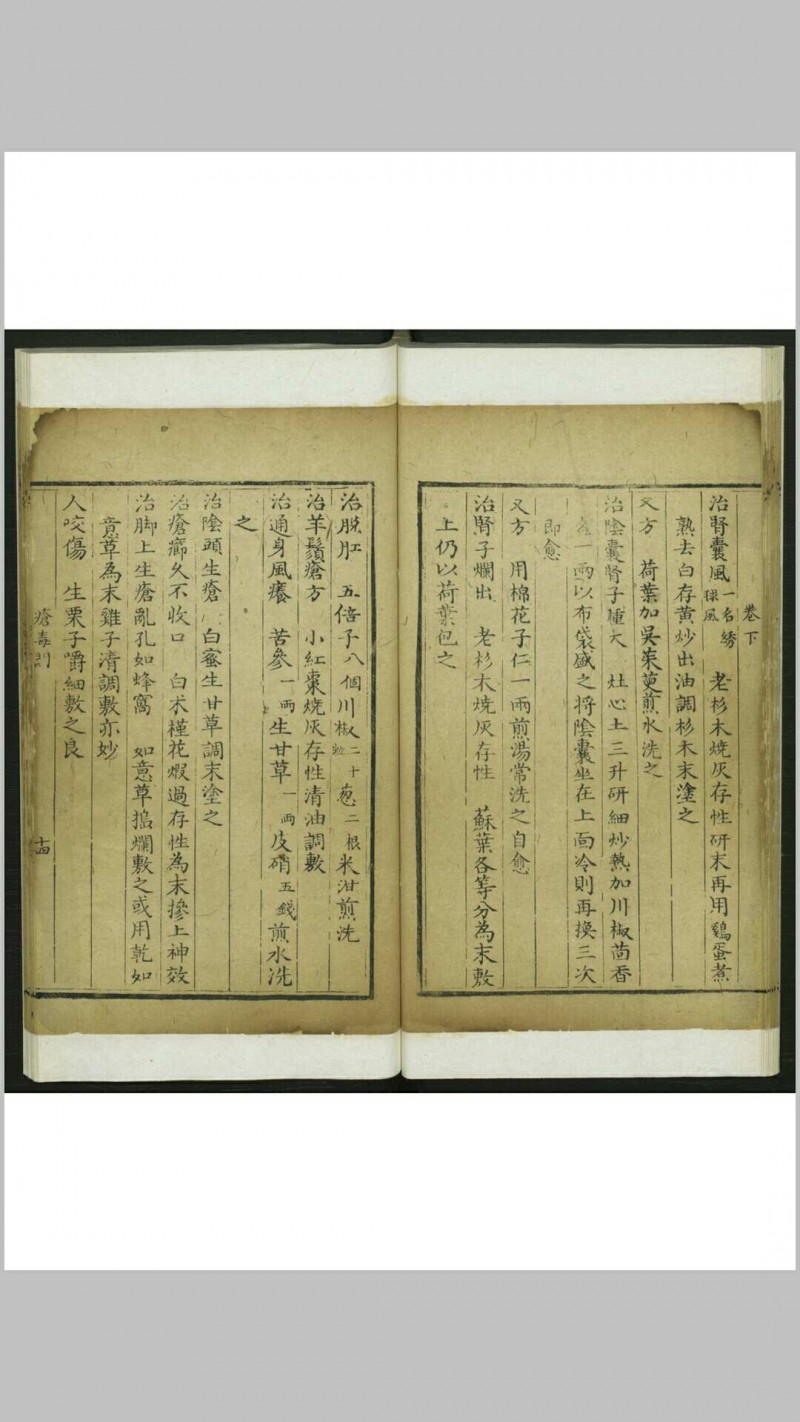 卷下
治腎囊風一名綉毬風 老杉木燒灰存性研末再用鷄蛋煮
熟去白存黃炒出油調杉木末塗之
又方 荷葉加吳茱萸煎水洗之
治陰囊腎子腫大 灶心土三升研細炒熟加川椒茴香
一兩以布袋盛之將陰囊坐在上面冷則再換三次
即愈
又方 用棉花子仁一兩煎湯常洗之自愈
治腎子爛出 老杉木燒灰存性 蘇葉各等分為末敷
上仍以荷葉包之
治脫肛 五倍子八個川椒二十粒葱二根米泔煎洗
治羊鬚瘡方 小紅棗燒灰存性清油調敷
治通身風癢 苦參一兩生甘草一兩皮硝五錢煎水洗
之
治陰頭生瘡 白蜜生甘草調末塗之
治瘡癤久不收口 白木槿花煅過存性為末摻上神效
治脚上生瘡亂孔如蜂窩 如意草搗爛敷之或用乾如
意草為末雞子清調敷亦妙
人咬傷 生栗子嚼細敷之良
瘡毒門 十四